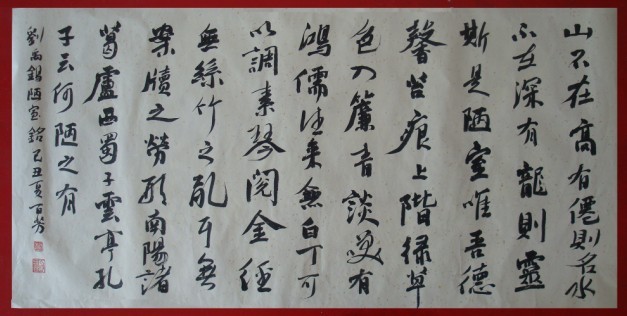 山不在高有僊則名水
不在深有龍則靈
斯是陋室唯吾德
馨苔痕上階綠草
色入簾青談笑有
鴻儒往來無白丁可
以調素琴閱金經
無絲竹之亂耳無
案牘之勞形南陽諸
葛廬西蜀子雲亭孔
子云何陋之有
劉禹錫陋室銘己丑夏百芳